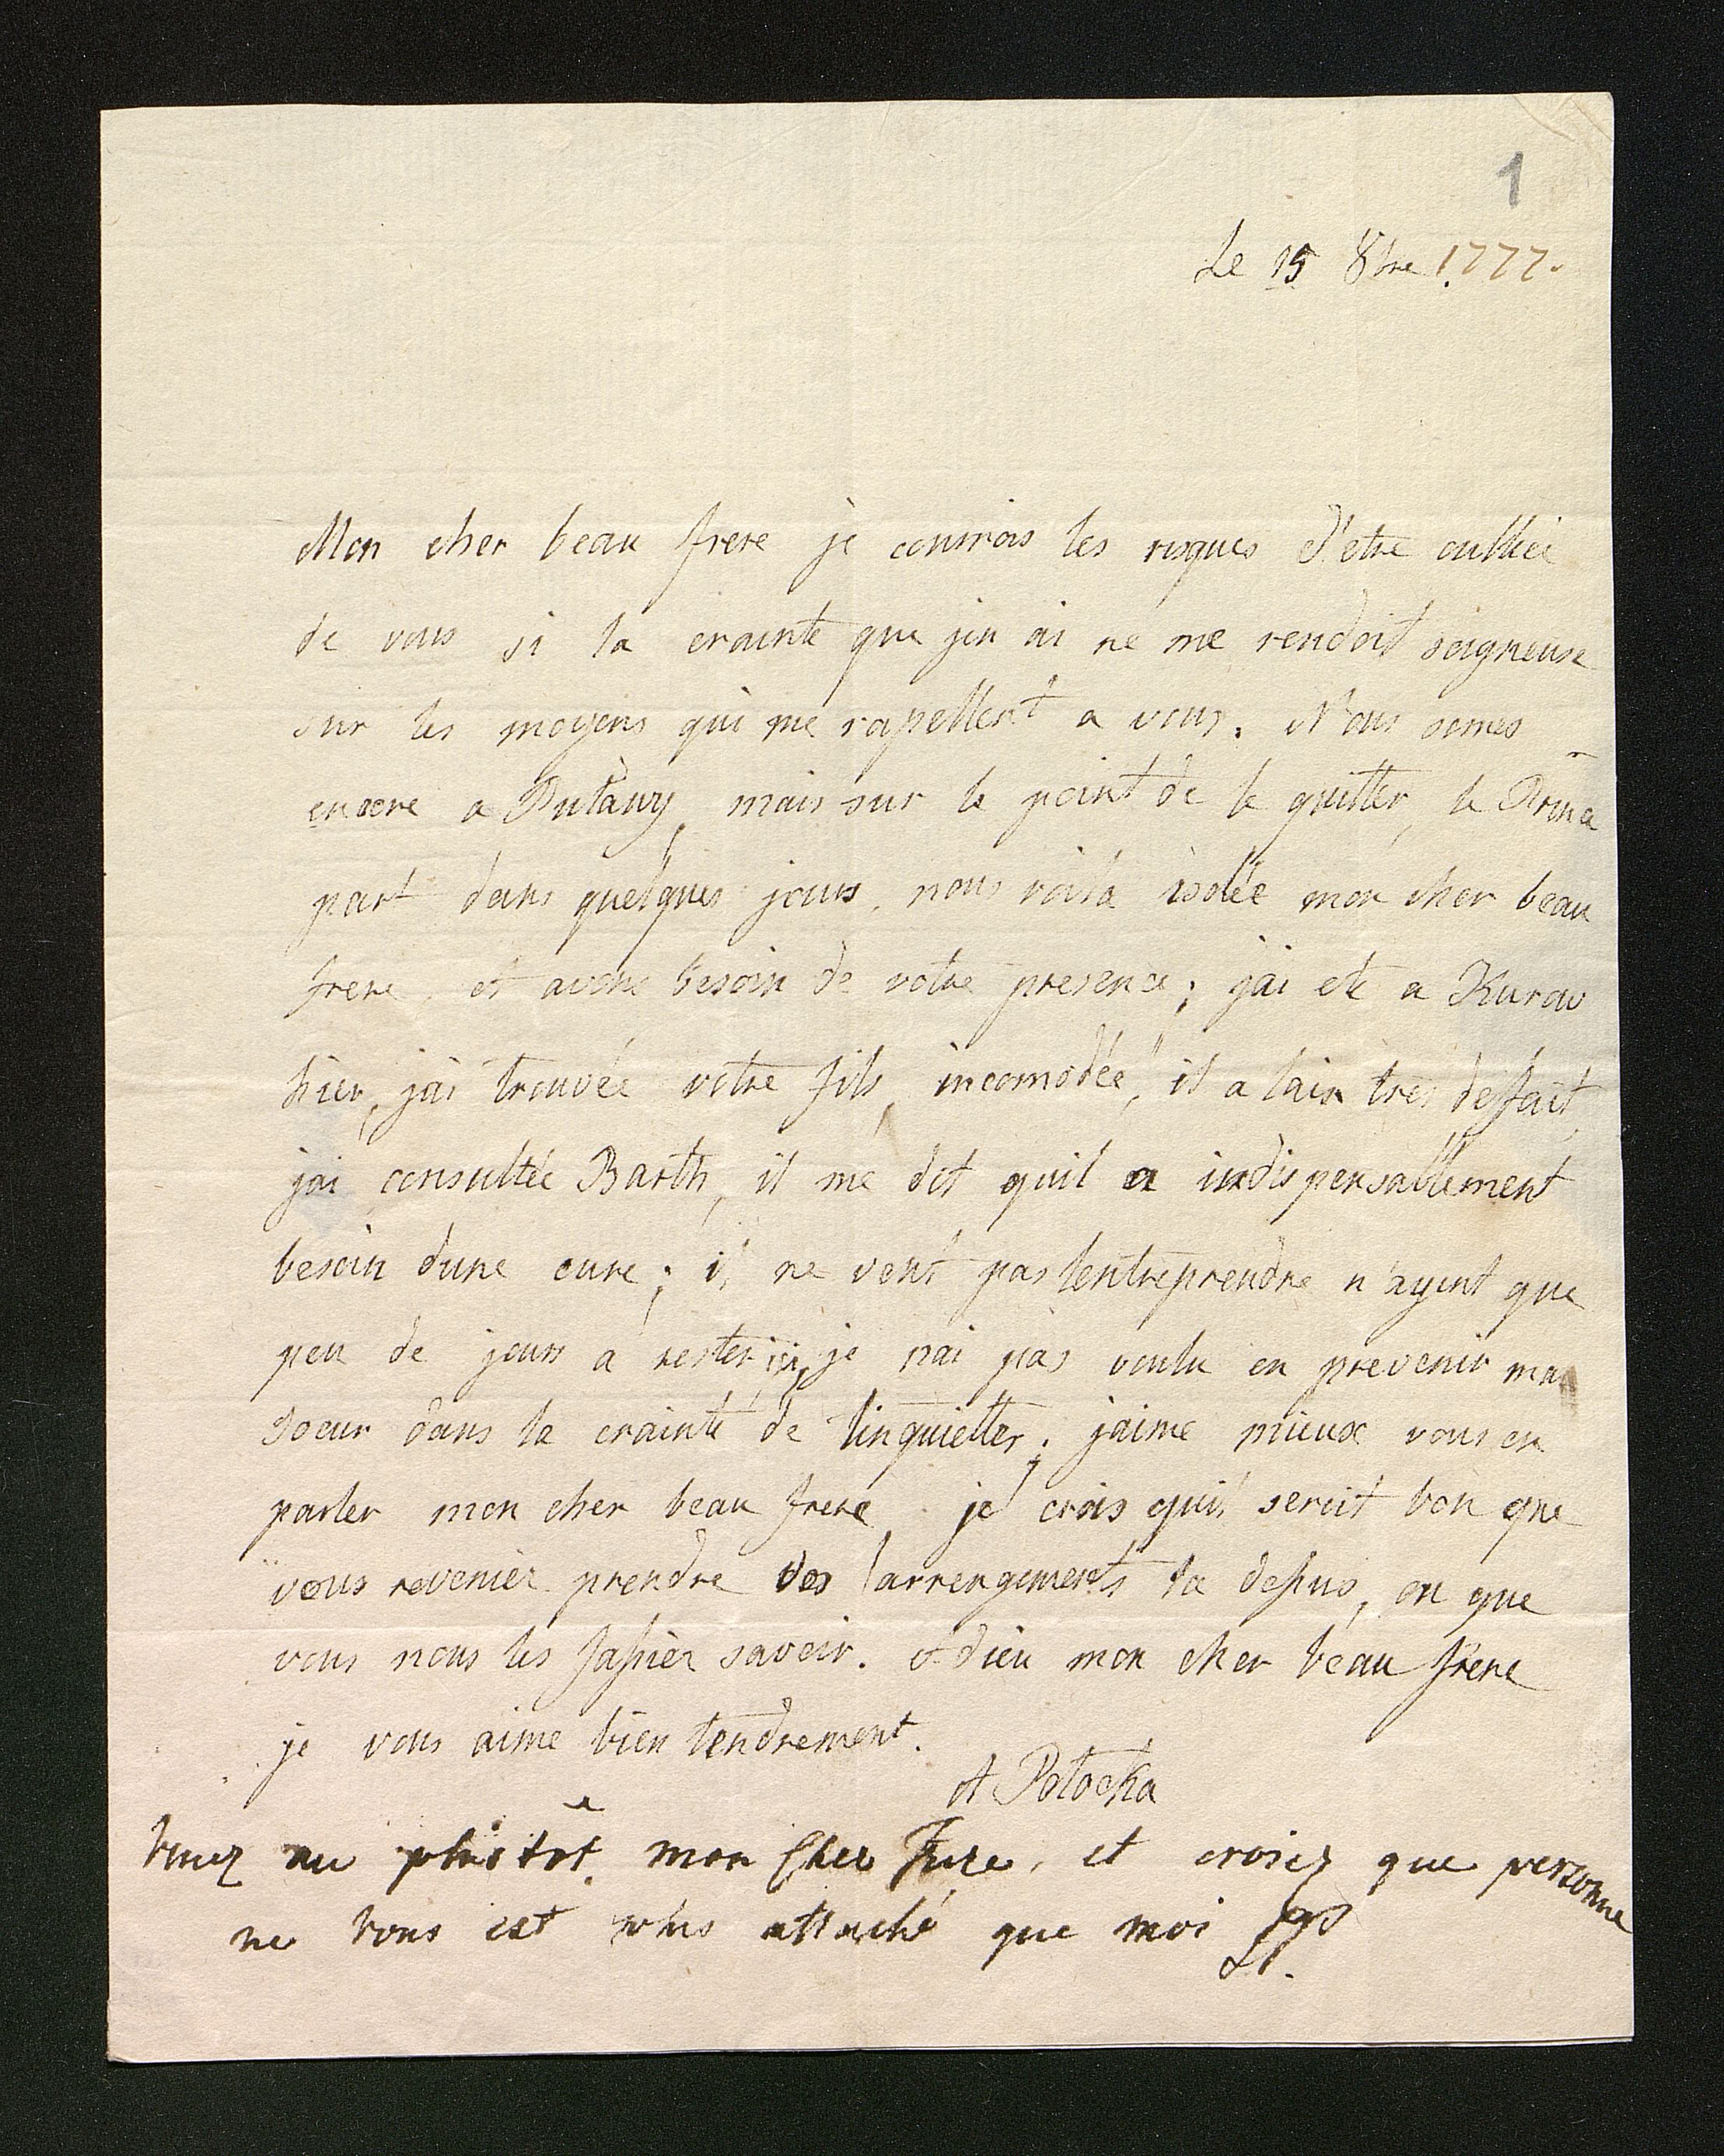 1
Le 15 8bre 1777.
Mon cher beau frere je conrrois les risques d'etre oubliée
de vous si la crainte que jen ai ne me rendoit soigneuse
sur les moyens qui me rapellent a vous. Nous somes
encore a Pulawy mais sur le point de le quitter, le Prince
part dans quelques jours, nous voila isolée mon cher beau
frere, et avons besoin de votre presence; jai eté a Kurow
hier, jai trouvée votre fils incomodée, il a lair tres deffait,
jai consultée Barth, il me dit quil a indispensablement
besoin dune cure; il ne veut pas lentreprendre n'ayent que
peu de jours a rester ici, je nai pas voulu en prevenir ma
soeur dans la crainte de linquietter; jaime mieux vous en
parler mon cher beau frere je crois quil seroit bon que
vous reveniez prendre des arrengements la dessus, ou que
vous nous les fassiez savoir. Adieu mon cher beau frere
je vous aime bien tendrement.
A Potocka
Venez au plustot mon Cher Frere, et croiez que personne
ne vous est plus attaché que moi